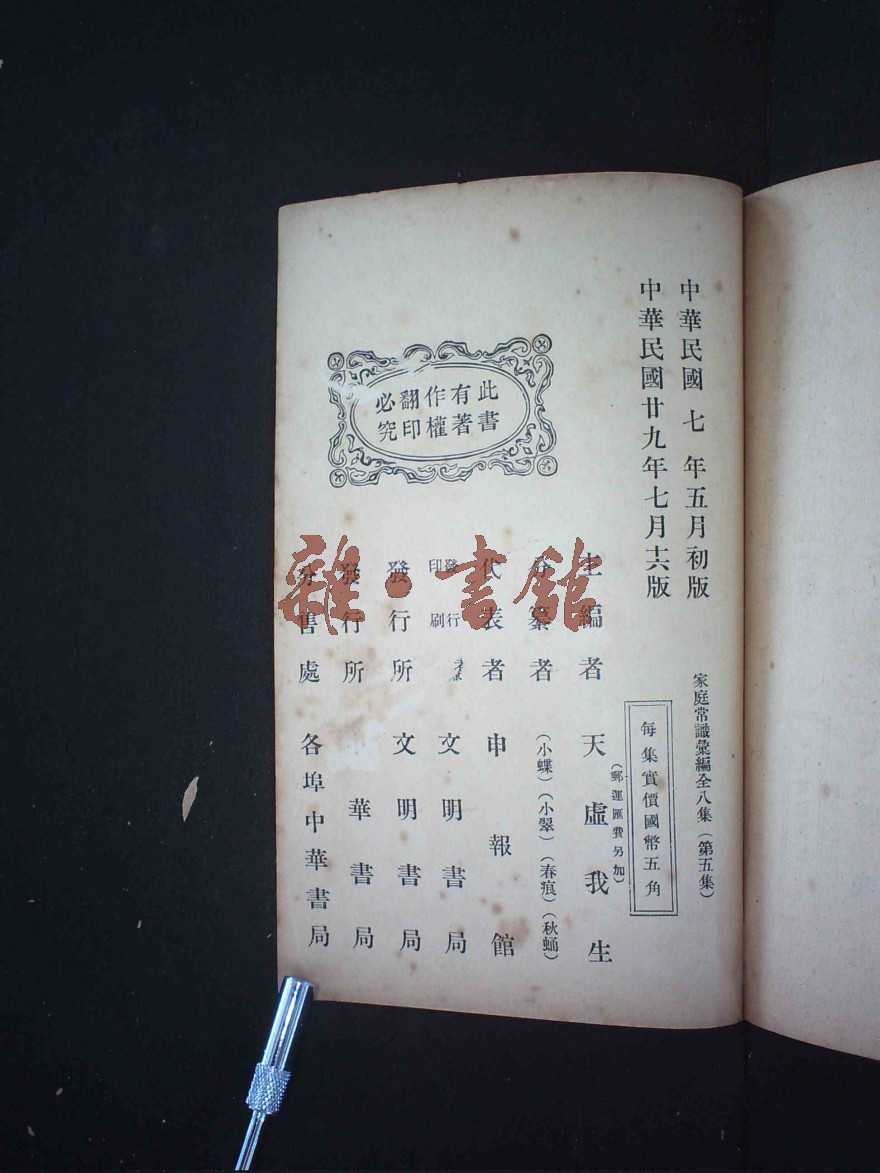 中華民國 七 年五月初版
中華民國廿九年七月十六版
家庭常識彙編全八集（第五集）
每集實價國幣五角
（郵運匯費另加）
主編者 天虛我生
分纂者 （小蝶）（小翠）（春痕）（秋蛹）
代表者 申報館
發行印刷者 文明書局
發行所 文明書局
發行所 華書局
分售處 各埠中華書局
此書有著作權翻印必究
雜·書館